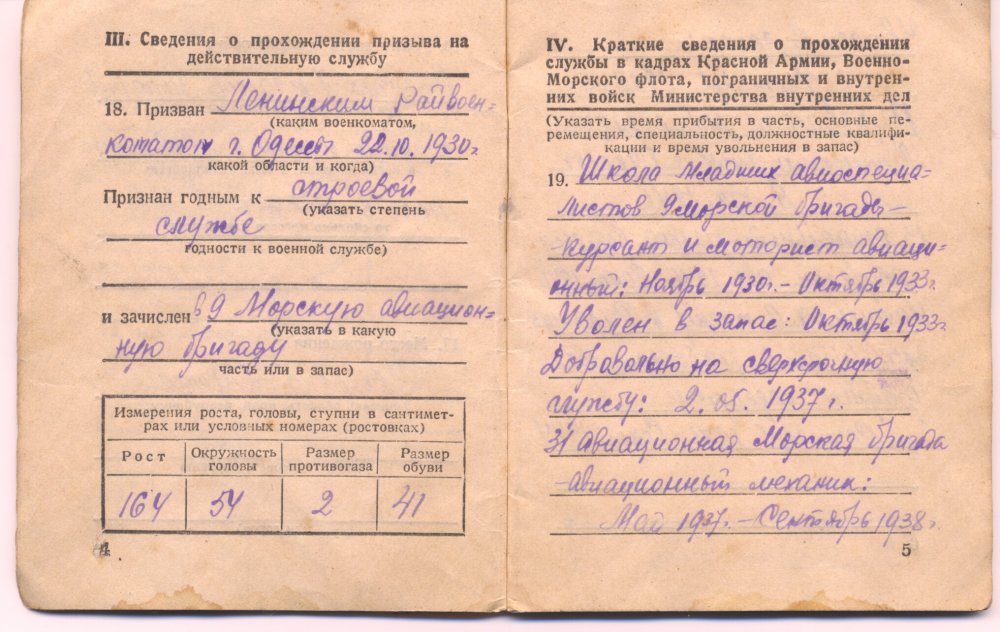 III. Сведения о прохождении призыва на
действительную службу
18. Призван Ленинским Райвоен=
(каким военкоматом,
коматом г. Одессы 22.10.1930г
какой области и когда)
Признан годным к строевой
(указать степень
службе
годности к военной службе)
и зачислен в 9 Морскую авиацион=
(указать в какую
ную бригаду
часть или в запас)
Измерения роста, головы, ступни в сантимет-
рах или условных номерах (ростовках)
Рост Окружность головы Размер противогаза Размер обуви
164 54 2 41
4
IV. Краткие сведения о прохождении
службы в кадрах Красной Армии, Военно-
Морского флота, пограничных и внутрен-
них войск Министерства внутренних дел
(Указать время прибытия в часть, основные пе-
ремещения, специальность, должностные квалифи-
кации и время увольнения в запас)
19. Школа младших авиоспециа=
листов 9 морской бригады –
-курсант и моторист авиаци=
онный: Ноябрь 1930г. – Октябрь 1933г.
Уволен в запас: Октябрь 1933г
Добровольно на сверхсрочную
службу: 2.05.1937г.
31 авиационная Морская бригада
-авиационный механик:
Май 1937г. – Сентябрь 1938г.
5